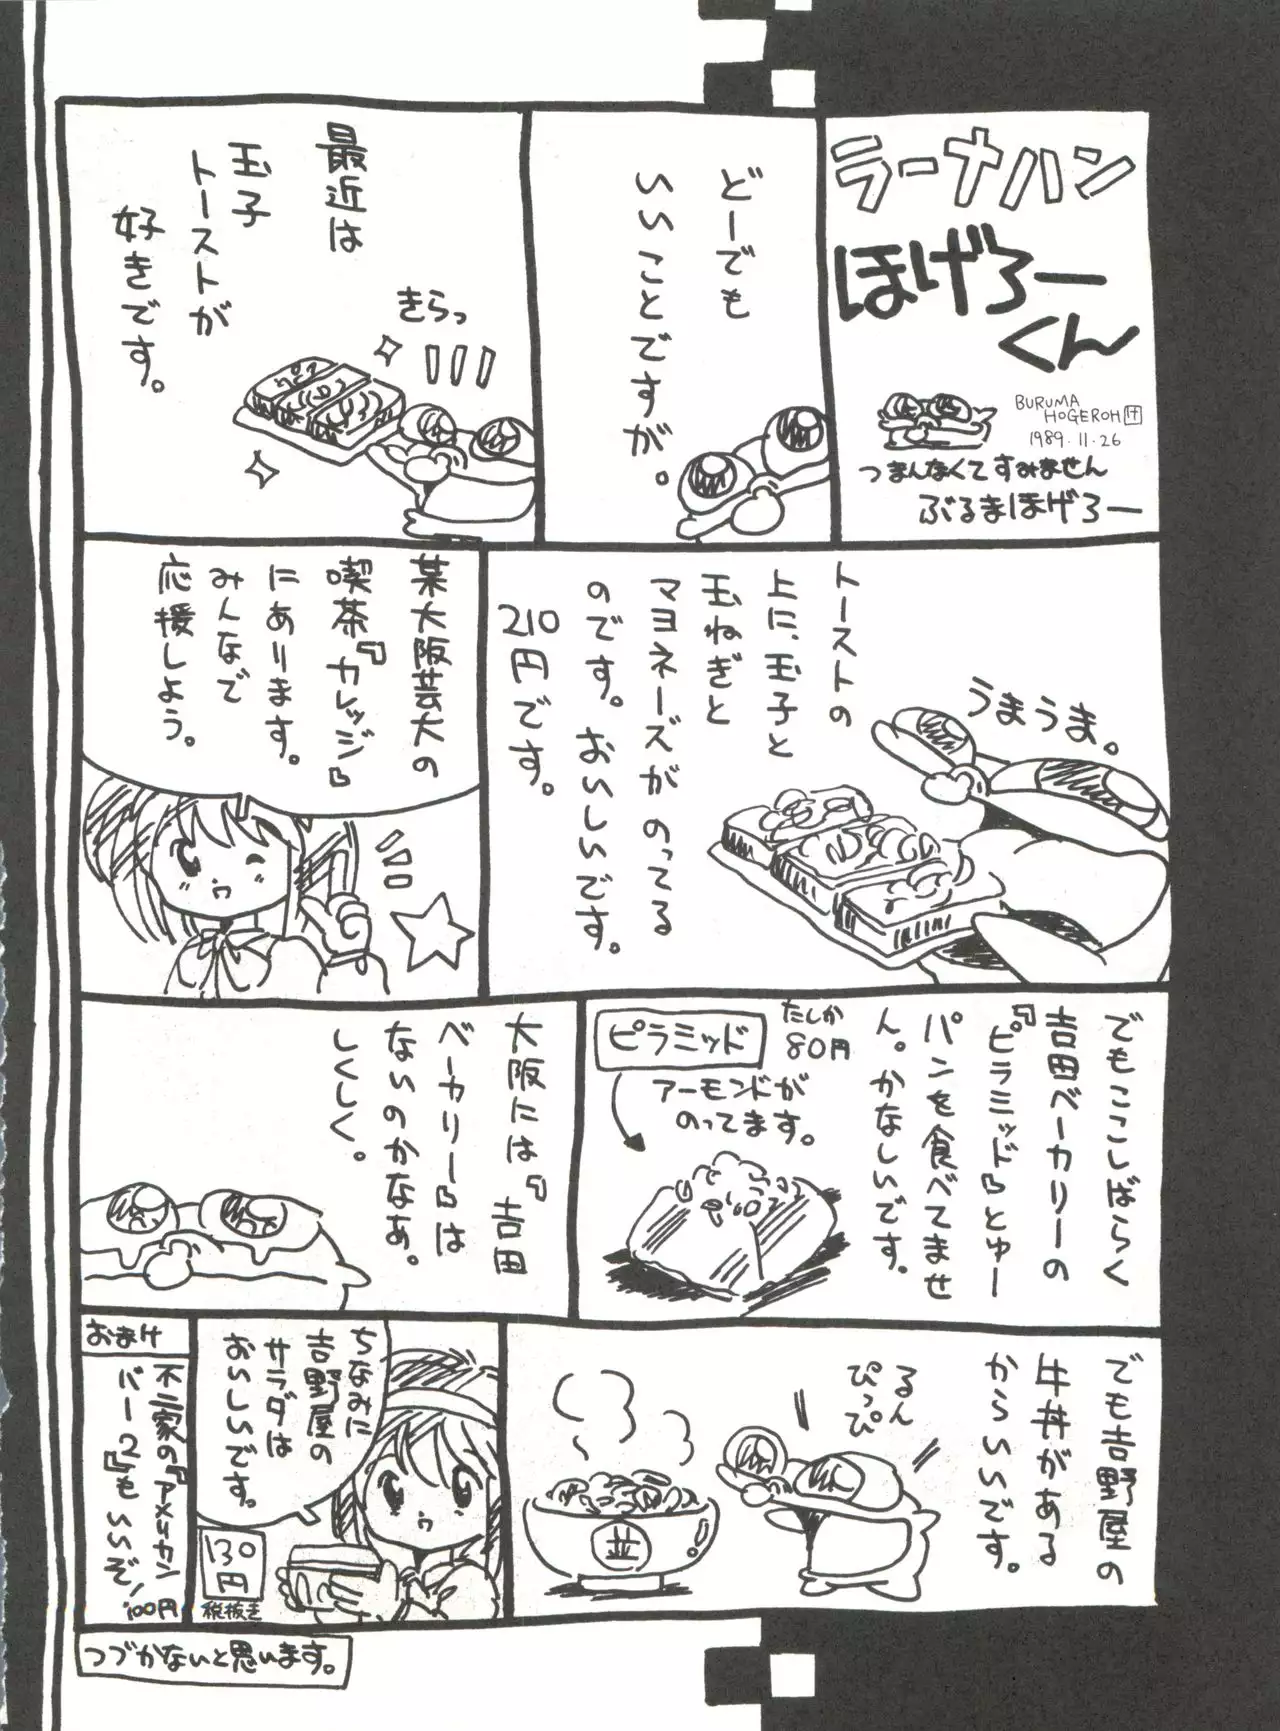 ラーナハン
ほげろー
くん
BURUMA
HOGEROH
1989.11.26
つまんなくてすみません
ぶるまほげろー
どーでも
いいことですが。
最近は
玉子
トーストが
好きです。
きらっ
トーストの
上に、玉子と
玉ねぎと
マヨネーズがのってる
のです。おいしいです。
210円です。
うまうま。
某大阪芸大の
喫茶『カレッジ』
にあります。
みんなで
応援しよう。
でもここしばらく
吉田ベーカリーの
『ピラミッド』とゆー
パンを食べてませ
ん。かなしいです。
たしか
80円
ピラミッド
アーモンドが
のってます。
大阪には『吉田
ベーカリー』は
ないのかなあ。
しくしく。
でも吉野屋の
牛丼がある
からいいです。
るん
ぴっぴ
並
ちなみに
吉野屋の
サラダは
おいしいです。
130
円
税抜き
おまけ
不二家の『アメリカン
バー2』もいいぞ!
100円
つづかないと思います。